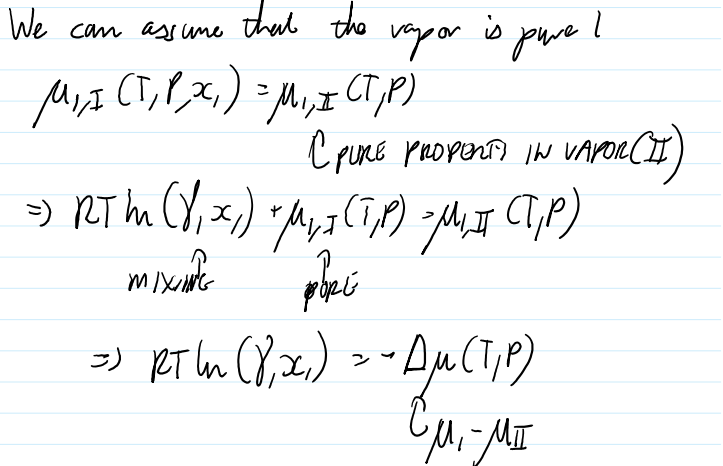 We can assume that the vapor is pure 1
μ₁,I (T, P, x₁) = μ₁,II (T, P)
↑ PURE PROPERTY IN VAPOR (II)
⇒ RT ln (γ₁ x₁) + μ₁,I (T, P) = μ₁,II (T, P)
↑ MIXING ↑ PURE
⇒ RT ln (γ₁ x₁) = - Δμ (T, P)
↑ μ₁ - μII